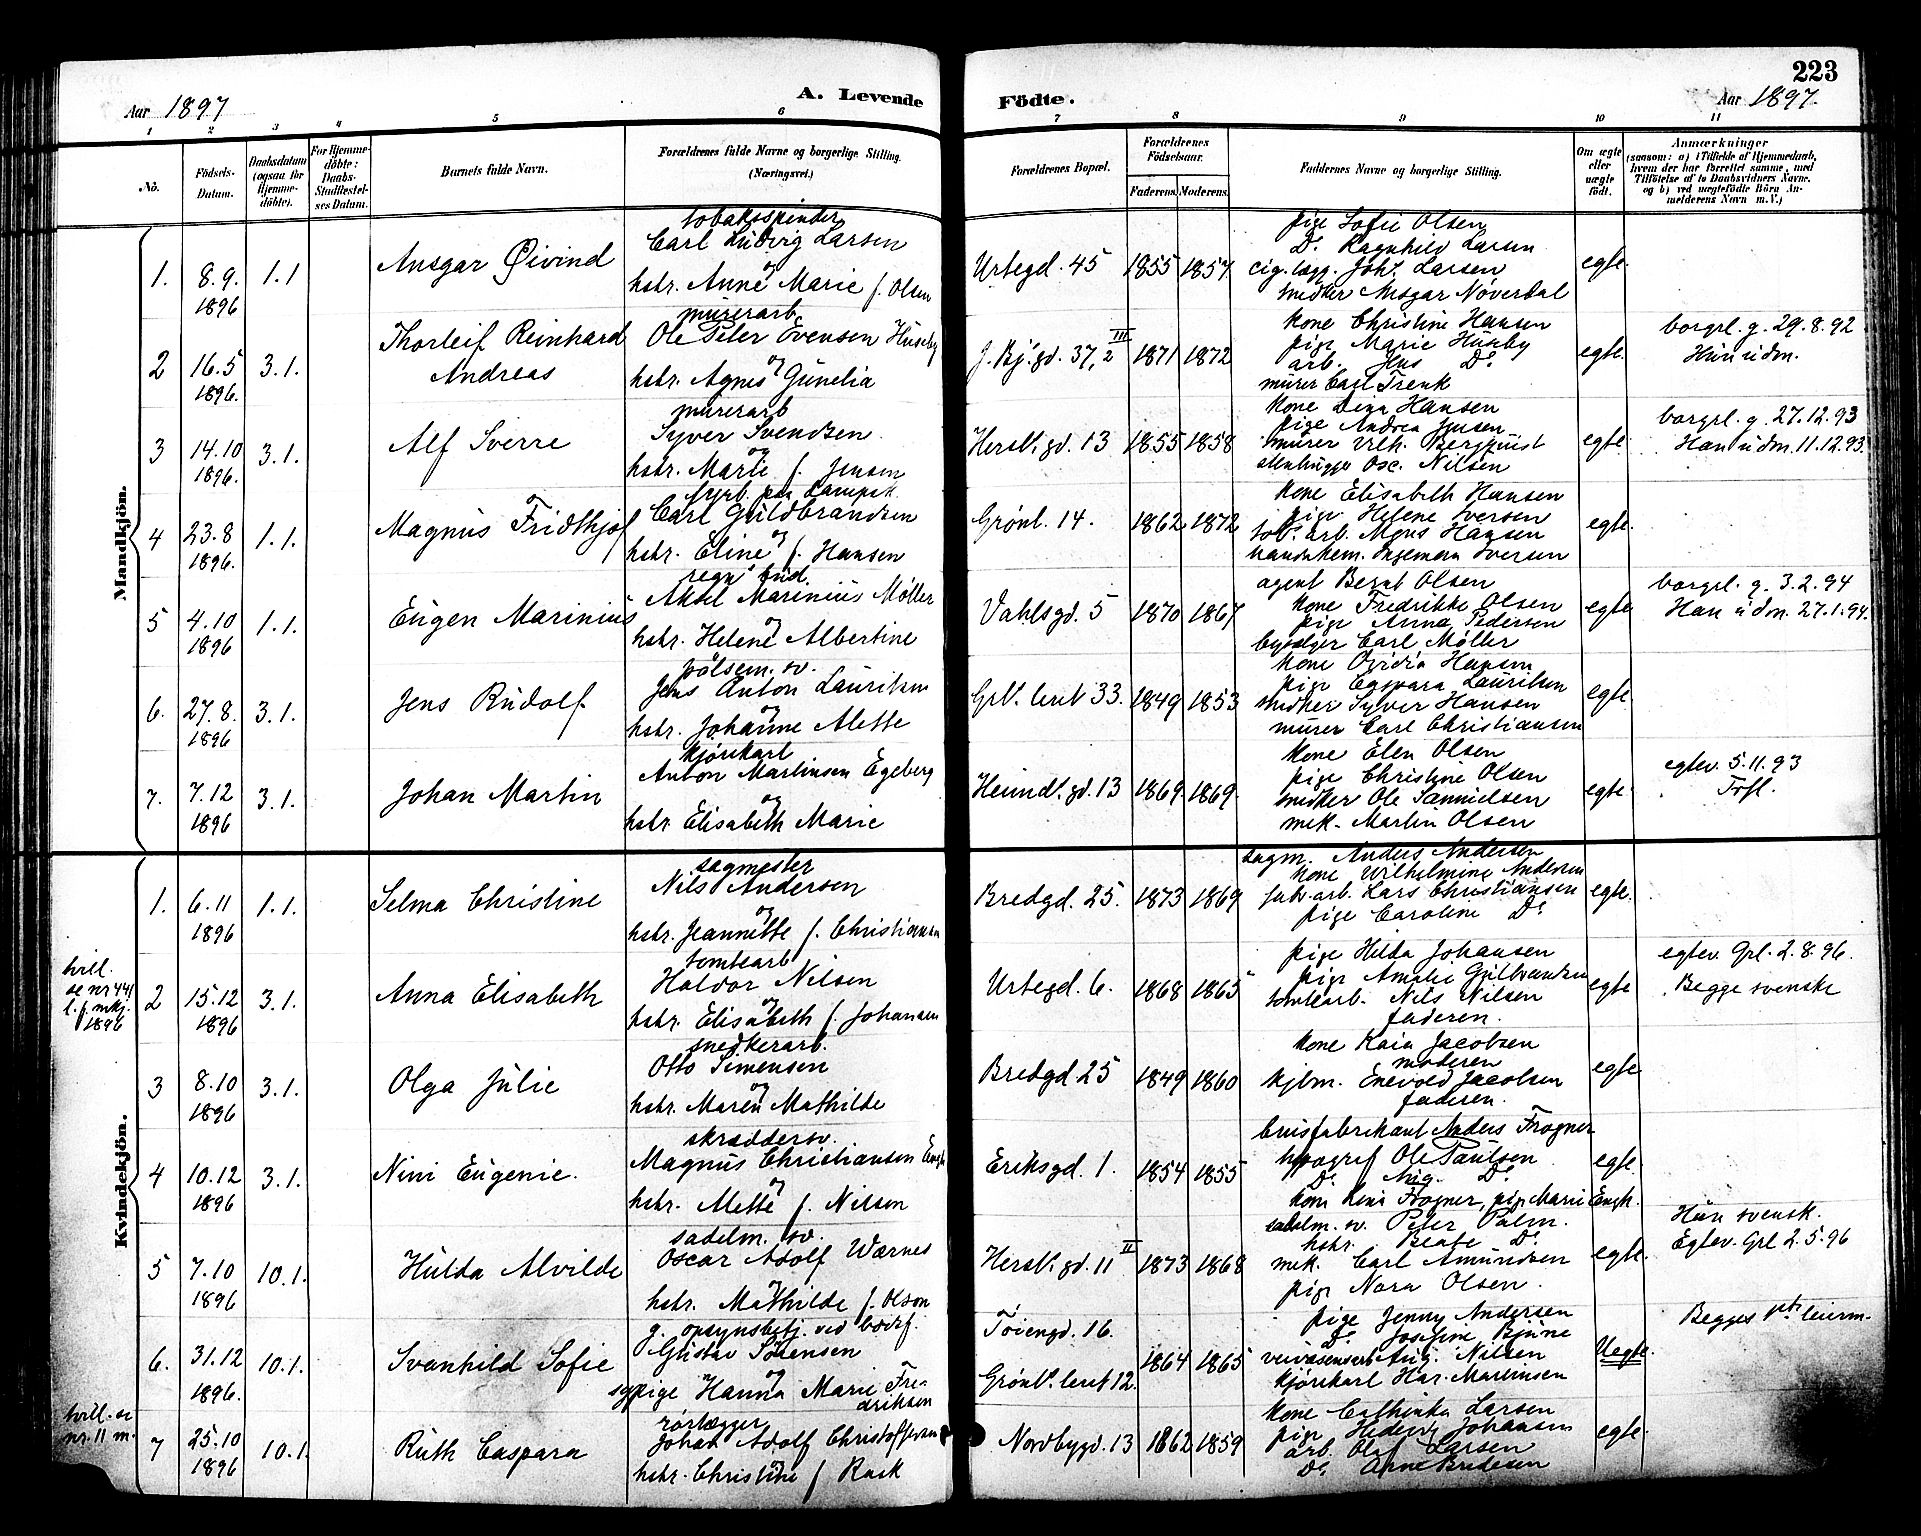 223
Aar 1897
A. Levende
Födte.
Aar 1897.
1 2 3 4 5 6 7 8 9 10 11
No.
Födsels-Datum.
Daabsdatum (ogsaa for Hjemme-döbte).
For Hjemme-döbte: Daabs-Stadfæstel-ses Datum.
Barnets fulde Navn.
Forældrenes fulde Navne og borgerlige Stilling. (Næringsvei.)
Forældrenes Bopæl.
Forældrenes Födselsaar.
Faderens. Moderens.
Faddernes Navne og borgerlige Stilling.
Om ægte eller uægte født.
Anmærkninger
(saasom: a) i Tilfælde af Hjemmedaab, hvem der har forrettet samme, med Tilföielse af to Daabsvidners Navne. og b) ved uægtefödte Börn An-melderens Navn m.V.)
Mandkjön.
1. 8.9. 1896 1.1
Ansgar Øivind
tobaksspinder
Carl Ludvig Larsen
og
hstr. Anne Marie f. Olsen
Urtegd. 45 1855 1857
pige Sofie Olsen
Do. Ragnhild Larsen
cig. lægg. Johs. Larsen
snedker Ansgar Nøverdal
egte.
2 16.5 1896. 3.1.
Thorleif Reinhard
Andreas
murerarb.
Ole Peter Evensen Huseby
og
hstr. Agnes Gunelia
J. Bj. gd. 37, 2 III 1871 1872
kone Christine Hansen
pige Marie Huseby
arb. Jens Do.
murer Carl Trenk
egte.
borgrl. g. 29.8.92
Hun udm.
3 14.10 1896. 3.1.
Alf Sverre
murerarb
Syver Svendsen
og
hstr. Marie f. Jensen
Hersl. gd. 13 1855 1858
kone Dina Hansen
pige Andrea Jensen
murer Vilh. Bergquist
stenhugger Osc. Nilsen
egte.
borgrl. g. 27.12.93
Han udm. 11.12.93.
4 23.8 1896. 1.1.
Magnus Fridthjof
fyrb. paa
Carl Guldbrandsen
og
hstr. Eline f. Hansen
Grønl. 14. 1862 1872
kone Elisabeth Hansen
pige Helene Iversen
tob. arb. Mons Hansen
Ingeman Iversen
egte.
5 4.10 1896 1.1.
Eugen Marinius
regn. bud.
Aksel Marinius Møller
og
hstr. Helene Albertine
Vahlsgd. 5 1870 1867
agent Bernt Olsen
kone Fredrikke Olsen
pige Anna Pedersen
Carl Møller
egte
borgrl. g. 3.2.94
Han udm. 27.1.94.
6. 27.8. 1896 3.1.
Jens Rudolf
pølsem. sv.
Jens Anton Lauritsen
og
hstr. Johanne Alette
Grl. leret 33. 1849 1853
kone Hansen
pige Lauritsen
snedker Syver Hansen
murer Carl Christiansen
egte.
7. 7.12 1896 3.1.
Johan Martin
kjørekarl
Anton Martinsen Egeberg
og
hstr Elisabeth Marie
Heimdl. gd. 13 1869. 1869.
kone Elen Olsen
pige Christine Olsen
snedker Ole Samuelsen
mek. Martin Olsen
egte.
egtev. 5.11.93
Trfl.
Kvindekjön.
1. 6.11 1896 1.1.
Selma Christine
sagmester
Nils Andersen
og
hstr. Jeannette f. Christiansen
Bredgd. 25. 1873 1869
sagm. Anders Andersen
kone Wilhelmine Andersen
fabr. arb. Lars Christiansen
pige Caroline Do.
egte.
tvill.
se nr 441
l. f. mkj.
1896
2 15.12 1896 3.1.
Anna Elisabeth
tomtearb
Haldor Nilsen
og
hstr. Elisabeth f. Johansen
Urtegd. 6. 1868 1865
pige Hilda Johansen
pige Amalie Gulbrandsen
tomtearb. Nils Nilsen
faderen.
egte
egtev. Grl. 2.8.96.
Begge svenske
3 8.10 1896 3.1.
Olga Julie
snedkerarb.
Otto Simensen
og
hstr. Maren Mathilde
Bredgd. 25 1849 1860
kone Kaia Jacobsen
moderen
kjbm. Enevold Jacobsen
faderen.
egte
4 10.12 1896 3.1.
Nini Eugenie.
skræddersv.
Magnus Christiansen Engh
og
hstr. Mette f. Nilsen
Eriksgd. 1. 1854 1855
brusfabrikant Anders Frogner
typograf Ole Paulsen
Do. Aug. Do.
kone Lina Frogner, pige Marie Engh.
egte.
5 7.10 1896 10.1.
Hulda Alvilde
sadelm. sv.
Oscar Adolf Wærnes
og
hstr. Mathilde f. Olson
Hersl. gd. 11 II 1873 1868
sadelm. sv. Peter Palm.
hstr. Beate Do.
mek. Carl Amundsen
pige Nora Olsen.
egte.
Hun svensk.
Egtev. Grl 2.5.96
6. 31.12 1896. 10.1.
Svanhild Sofie
g. opsynsbetj. ved bødsf.
Gustav Sørensen
og
sypige Hanna Marie Fre-
driksen
Tøiengd. 16.
Grønl. leret 12. 1864 1865
pige Jenny Andersen
Do. Josefine Bjune
Aug. Nilsen
kjørekarl Har. Martinsen
Uegte.
Begges 1ste leierm.
tvill. se
nr. 11 m.
7 25.10 1896 10.1
Ruth Caspara
rørlægger
Johan Adolf Christoffersen
og
hstr. Christine f Rask
Nordbygd. 13 1862 1859
kone Cathinka Larsen
pige Hedevig Johansen
arb. Olaf Larsen
Do. Arne Bredesen
egte.